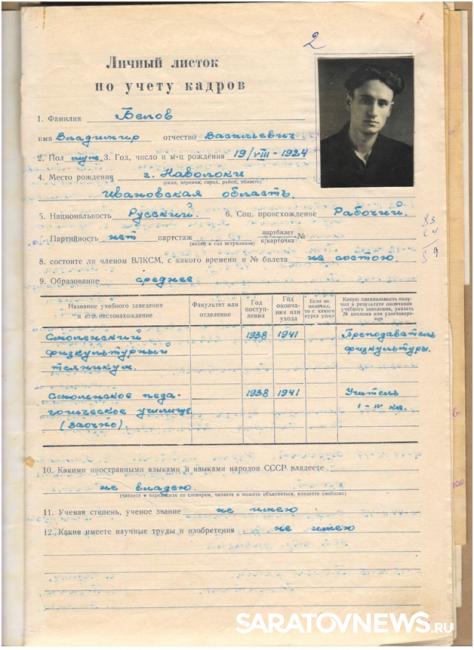 2
Личный листок
по учету кадров
1. Фамилия Белов
имя Владимир отчество Васильевич
2. Пол муж. 3. Год, число и м-ц рождения 19/VIII-1924
4. Место рождения г. Наволоки
(село, деревня, город, район, область)
Ивановская область.
5. Национальность Русский. 6. Соц. происхождение Рабочий.
7. Партийность нет партстаж партбилет
к/карточка №
8. состоите ли членом ВЛКСМ, с какого времени и № билета не состою.
9. Образование среднее
Название учебного заведения и его местонахождение
Факультет или отделение
Год поступления
Год окончания или ухода
Если не окончил, то с какого курса ушел
Какую специальность получил в результате окончания учебного заведения, указать № диплома или удостоверения
Смоленский 1938 1941 Преподаватель
физкультурный физкультуры.
техникум.
Смоленское педа- 1938 1941 Учитель
гогическое училище I-IV кл.
(заочно).
10. Какими иностранными языками и языками народов СССР владеете
не владею
(читаете и переводите со словарем, читаете и можете объясняться, владеете свободно)
11. Ученая степень, ученое звание не имею
12. Какие имеете научные труды и изобретения не имею
SARATOVNEWS.RU